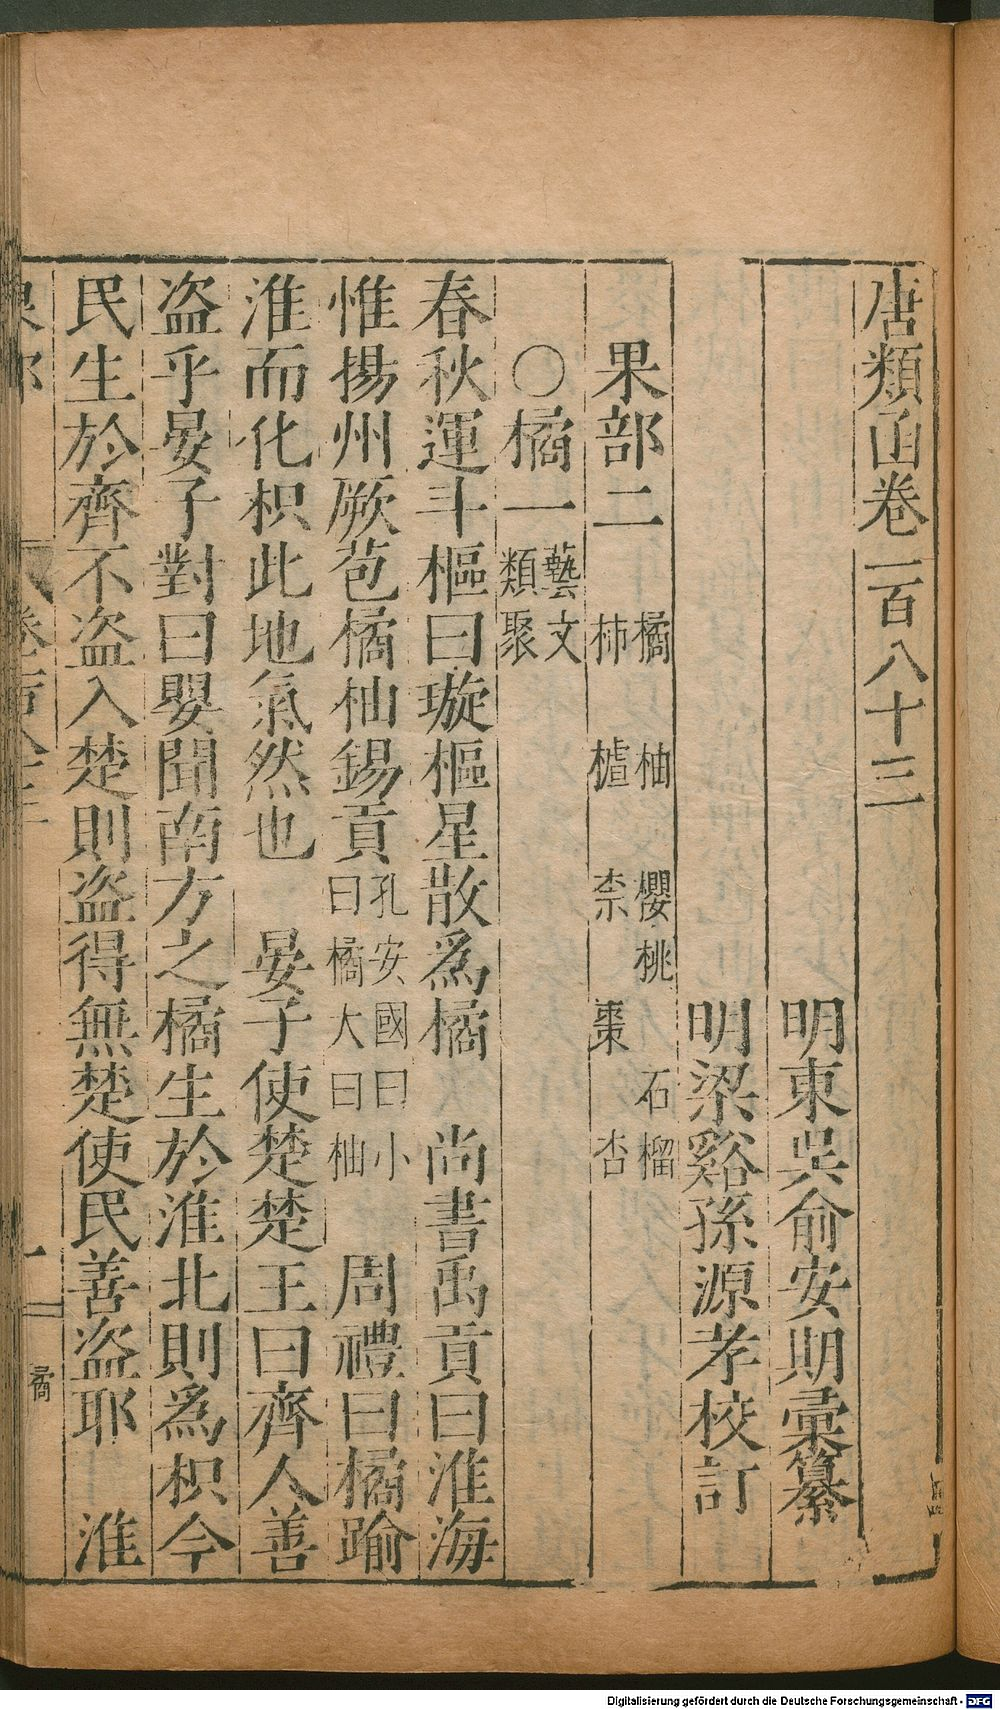 唐類函卷一百八十三
明東吳俞安期彙纂
明梁谿孫源孝校訂
果部二 橘 柚 櫻桃 石榴
柿 樝 柰 棗 杏
○橘一 藝文
類聚
春秋運斗樞曰璇樞星散爲橘 尚書禹貢曰淮海
惟揚州厥苞橘柚錫貢 孔安國曰小
曰橘大曰柚 周禮曰橘踰
淮而化枳此地氣然也 晏子使楚楚王曰齊人善
盜乎晏子對曰嬰聞南方之橘生於淮北則爲枳今
民生於齊不盜入楚則盜得無楚使民善盜耶 淮
一
橘
Digitalisierung gefördert durch die Deutsche Forschungsgemeinschaft - DFG